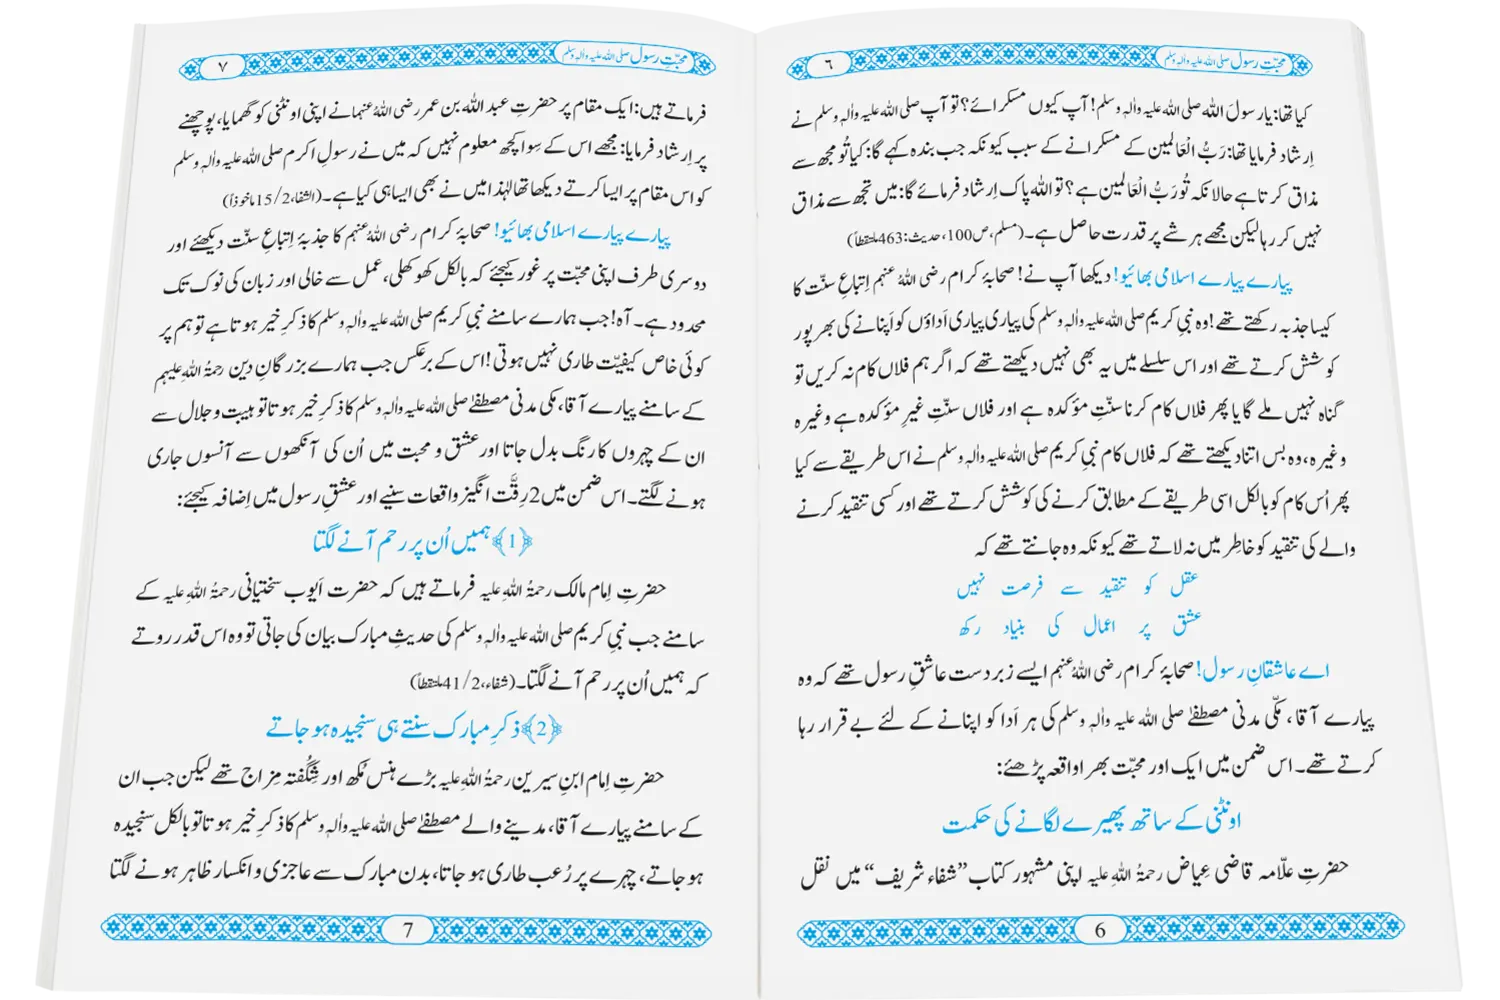 محبّتِ رسول صلی اللہ علیہ واٰلہٖ وسلم
٦
کیا تھا: یارسولَ اللہ صلی اللہ علیہ واٰلہٖ وسلم! آپ کیوں مسکرائے؟ تو آپ صلی اللہ علیہ واٰلہٖ وسلم نے
اِرشاد فرمایا تھا: رَبُّ الْعَالمین کے مسکرانے کے سبب کیونکہ جب بندہ کہے گا: کیا تُو مجھ سے
مذاق کرتا ہے حالانکہ تُو رَبُّ الْعَالمین ہے؟ تو اللہ پاک اِرشاد فرمائے گا: میں تجھ سے مذاق
نہیں کر رہا لیکن مجھے ہر شے پر قدرت حاصل ہے۔ (مسلم، ص100، حدیث:463 ملتقطاً)
پیارے پیارے اسلامی بھائیو! دیکھا آپ نے! صحابۂ کرام رضی اللہُ عنہم اِتباعِ سنّت کا
کیسا جذبہ رکھتے تھے! وہ نبیِ کریم صلی اللہ علیہ واٰلہٖ وسلم کی پیاری پیاری اَداؤں کو اَپنانے کی بھرپور
کوشش کرتے تھے اور اس سلسلے میں یہ بھی نہیں دیکھتے تھے کہ اگر ہم فلاں کام نہ کریں تو
گناہ نہیں ملے گا یا پھر فلاں کام کرنا سنّتِ مؤکدہ ہے اور فلاں سنّتِ غیرِ مؤکدہ ہے وغیرہ
وغیرہ، وہ بس اتنا دیکھتے تھے کہ فلاں کام نبیِ کریم صلی اللہ علیہ واٰلہٖ وسلم نے اس طریقے سے کیا
پھر اُس کام کو بالکل اسی طریقے کے مطابق کرنے کی کوشش کرتے تھے اور کسی تنقید کرنے
والے کی تنقید کو خاطِر میں نہ لاتے تھے کیونکہ وہ جانتے تھے کہ
عقل کو تنقید سے فرصت نہیں
عشق پر اعمال کی بنیاد رکھ
اے عاشقانِ رسول! صحابۂ کرام رضی اللہُ عنہم ایسے زبردست عاشقِ رسول تھے کہ وہ
پیارے آقا، مکّی مدنی مصطفےٰ صلی اللہ علیہ واٰلہٖ وسلم کی ہر اَدا کو اپنانے کے لئے بے قرار رہا
کرتے تھے۔ اس ضمن میں ایک اور محبّت بھرا واقعہ پڑھئے:
اونٹنی کے ساتھ پھیرے لگانے کی حکمت
حضرتِ علّامہ قاضی عِیاض رحمۃُ اللہِ علیہ اپنی مشہور کتاب ”شفاء شریف“ میں نقل
6
محبّتِ رسول صلی اللہ علیہ واٰلہٖ وسلم
٧
فرماتے ہیں: ایک مقام پر حضرتِ عبد اللہ بن عمر رضی اللہُ عنہما نے اپنی اونٹنی کو گھمایا، پوچھنے
پر اِرشاد فرمایا: مجھے اس کے سِوا کچھ معلوم نہیں کہ میں نے رسولِ اکرم صلی اللہ علیہ واٰلہٖ وسلم
کو اس مقام پر ایسا کرتے دیکھا تھا لہٰذا میں نے بھی ایسا ہی کیا ہے۔ (الشفا، 2/15 ماخوذاً)
پیارے پیارے اسلامی بھائیو! صحابۂ کرام رضی اللہُ عنہم کا جذبۂ اِتباعِ سنّت دیکھئے اور
دوسری طرف اپنی محبّت پر غور کیجئے کہ بالکل کھوکھلی، عمل سے خالی اور زبان کی نوک تک
محدود ہے۔ آہ! جب ہمارے سامنے نبیِ کریم صلی اللہ علیہ واٰلہٖ وسلم کا ذکرِ خیر ہوتا ہے تو ہم پر
کوئی خاص کیفیّت طاری نہیں ہوتی! اس کے برعکس جب ہمارے بزرگانِ دین رحمۃُ اللہِ علیہم
کے سامنے پیارے آقا، مکی مدنی مصطفےٰ صلی اللہ علیہ واٰلہٖ وسلم کا ذکرِ خیر ہوتا تو ہیبت و جلال سے
ان کے چہروں کا رنگ بدل جاتا اور عشق و محبت میں اُن کی آنکھوں سے آنسوں جاری
ہونے لگتے۔ اس ضمن میں 2 رِقّت انگیز واقعات سنیے اور عشقِ رسول میں اِضافہ کیجئے:
﴿1﴾ ہمیں اُن پر رحم آنے لگتا
حضرتِ اِمام مالک رحمۃُ اللہِ علیہ فرماتے ہیں کہ حضرت اَیوب سختیانی رحمۃُ اللہِ علیہ کے
سامنے جب نبیِ کریم صلی اللہ علیہ واٰلہٖ وسلم کی حدیثِ مبارک بیان کی جاتی تو وہ اس قدر روتے
کہ ہمیں اُن پر رحم آنے لگتا۔ (شفاء، 2/41 ملتقطاً)
﴿2﴾ ذکرِ مبارک سنتے ہی سنجیدہ ہو جاتے
حضرتِ اِمام ابنِ سیرین رحمۃُ اللہِ علیہ بڑے ہنس مُکھ اور شِگُفتہ مِزاج تھے لیکن جب ان
کے سامنے پیارے آقا، مدینے والے مصطفےٰ صلی اللہ علیہ واٰلہٖ وسلم کا ذکرِ خیر ہوتا تو بالکل سنجیدہ
ہو جاتے، چہرے پر رُعب طاری ہو جاتا، بدن مبارک سے عاجزی و انکسار ظاہر ہونے لگتا
7